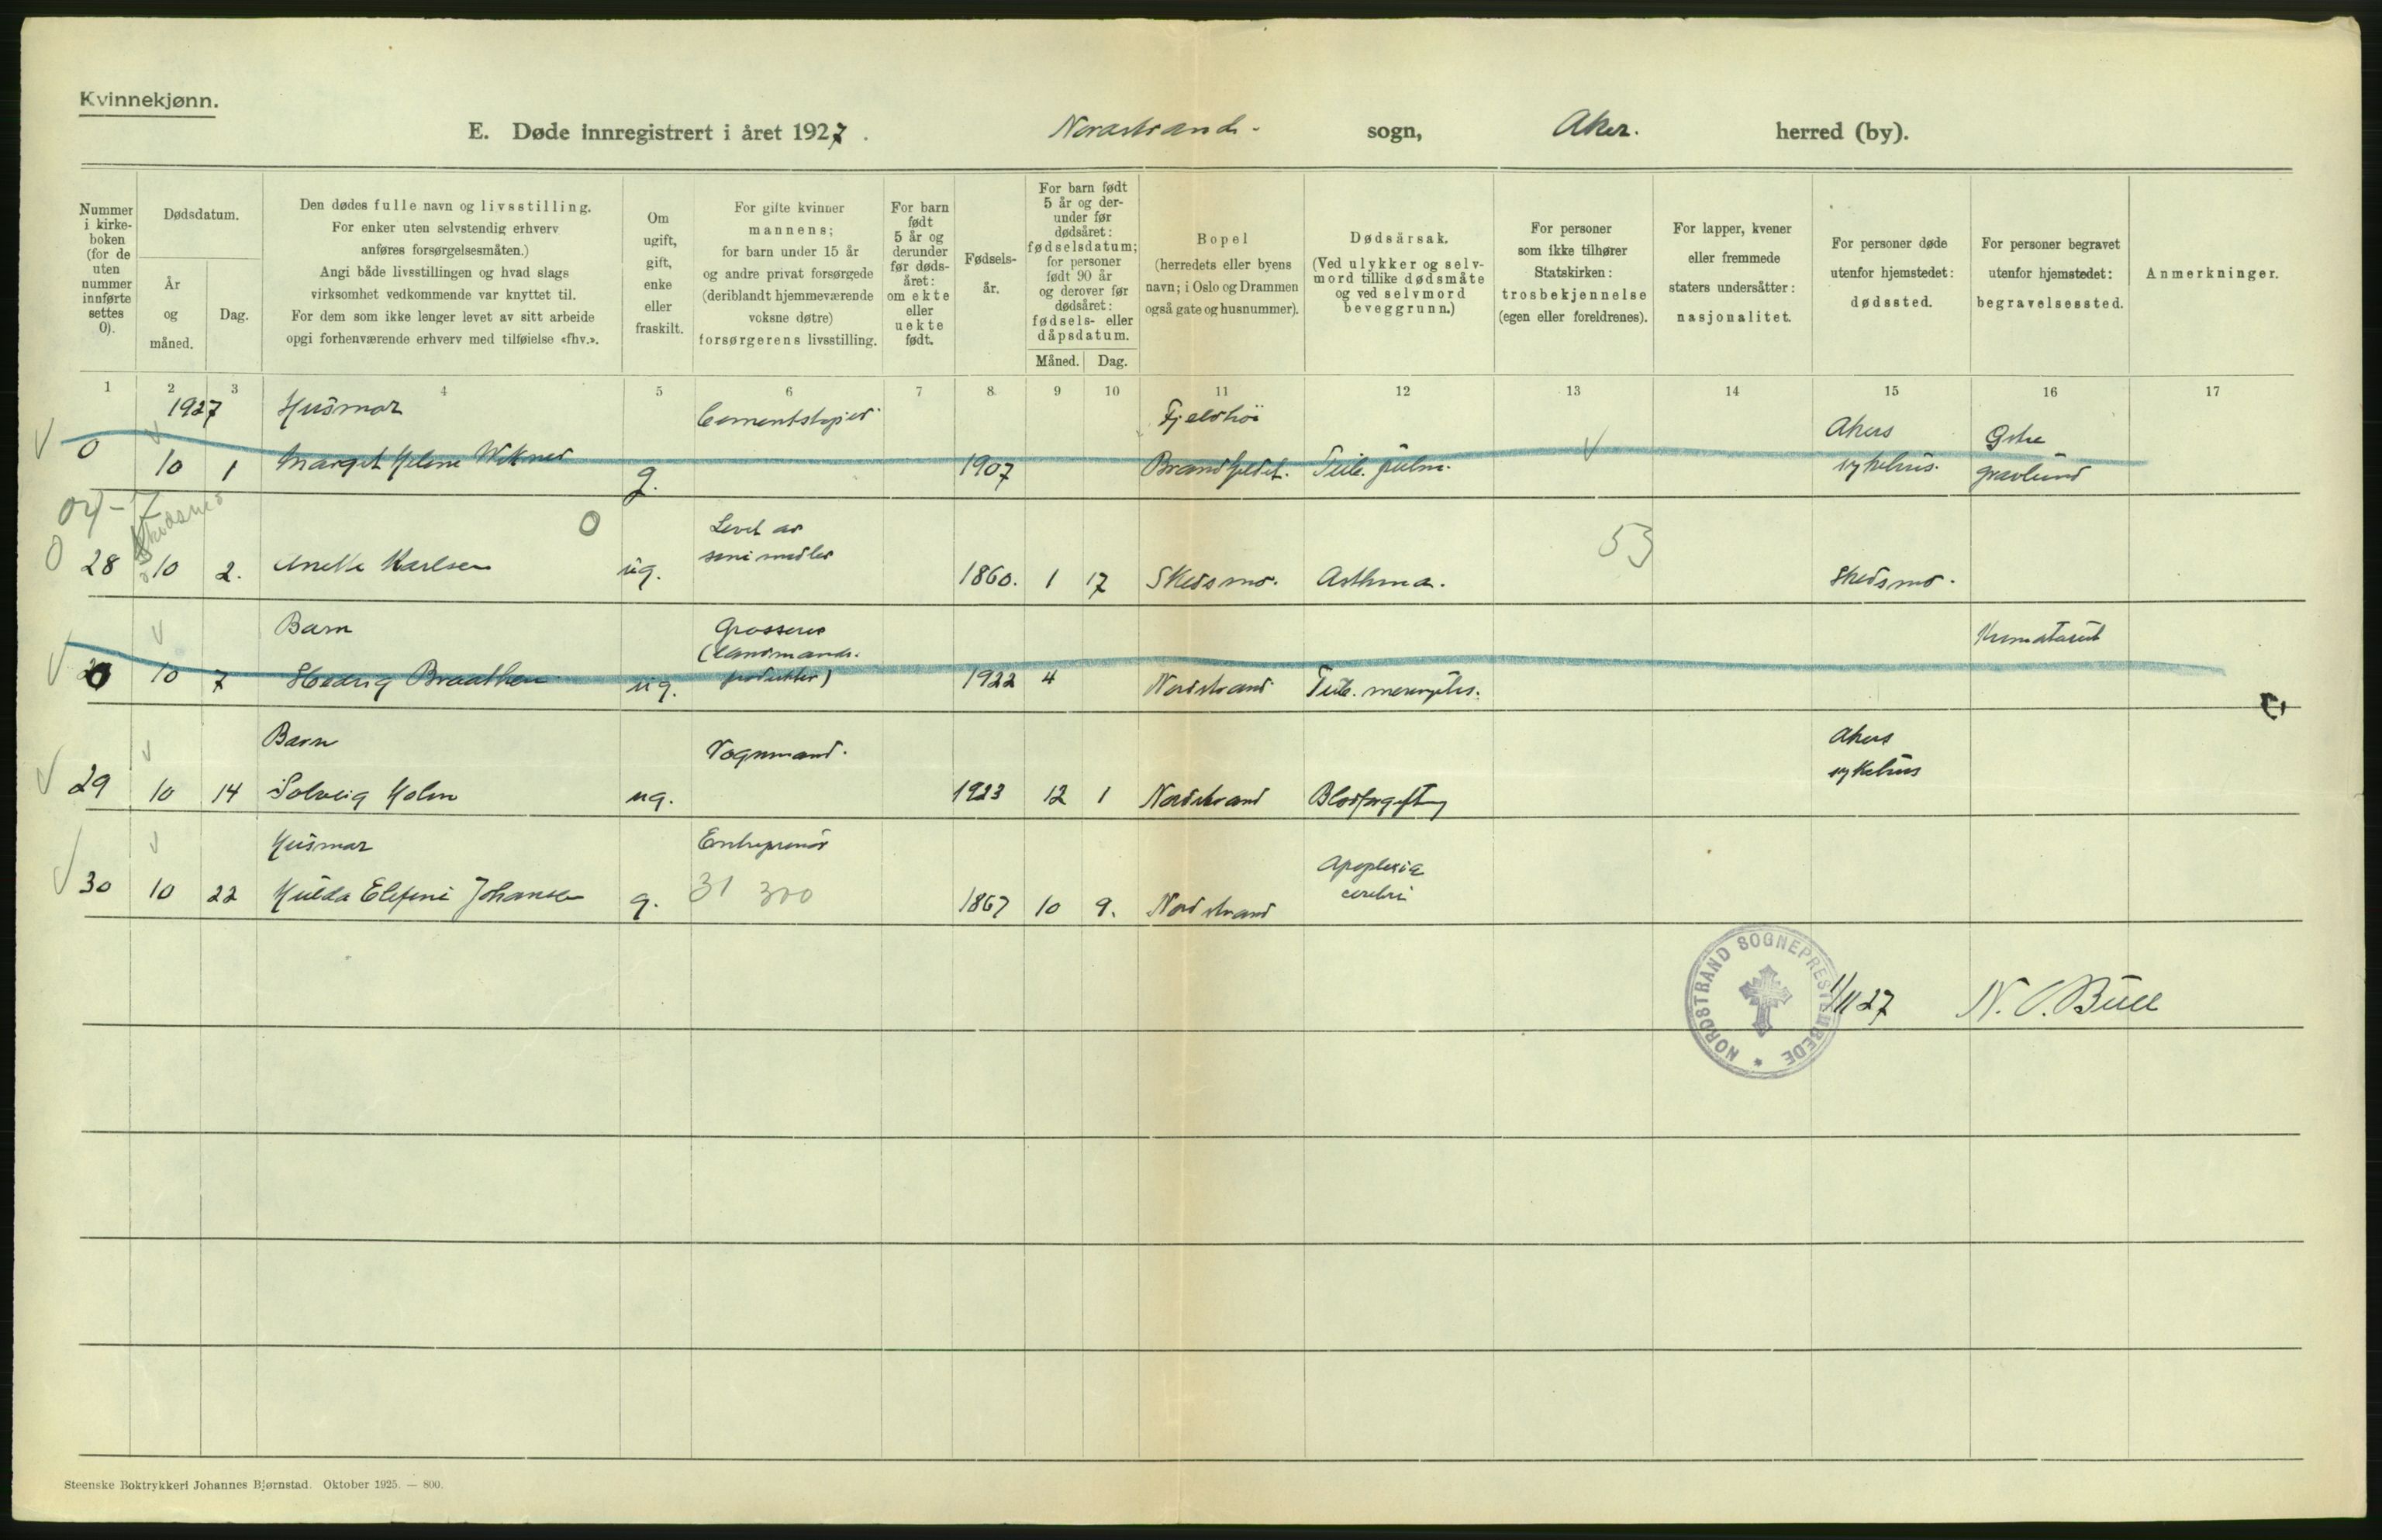 Kvinnekjønn.
E. Døde innregistrert i året 1927. Nordstrand- sogn, Aker. herred (by).
Nummer i kirke-boken (for de uten nummer innførte settes 0).
Dødsdatum.
År og måned.
Dag.
Den dødes fulle navn og livsstilling.
For enker uten selvstendig erhverv
anføres forsørgelsesmåten.)
Angi både livsstillingen og hvad slags
virksomhet vedkommende var knyttet til.
For dem som ikke lenger levet av sitt arbeide
opgi forhenværende erhverv med tilføielse «fhv.».
Om ugift, gift, enke eller fraskilt.
For gifte kvinner
mannens;
for barn under 15 år
og andre privat forsørgede
(deriblandt hjemmeværende
voksne døtre)
forsørgerens livsstilling.
For barn født 5 år og derunder før døds-året: om ekte eller uekte født.
Fødsels-år.
For barn født 5 år og der-under før dødsåret: fødselsdatum; for personer født 90 år og derover før dødsåret: fødsels- eller dåpsdatum.
Måned. Dag.
Bopel
(herredets eller byens
navn; i Oslo og Drammen
også gate og husnummer).
Dødsårsak.
(Ved ulykker og selv-
mord tillike dødsmåte
og ved selvmord
beveggrunn.)
For personer
som ikke tilhører
Statskirken:
trosbekjennelse
(egen eller foreldrenes).
For lapper, kvener
eller fremmede
staters undersåtter:
nasjonalitet.
For personer døde
utenfor hjemstedet:
dødssted.
For personer begravet
utenfor hjemstedet:
begravelsessted.
Anmerkninger.
1 2 3 4 5 6 7 8 9 10 11 12 13 14 15 16 17
1927 Husmor Cementstøper Fjeldhöi Akers Østre
0 10 1 Margit Helene g. 1907 Brandfjeldet. Tub. pulm. sykehus. gravlund
Skedsmo
0 Levet av
0 28 10 2. Anette Karlsen ug. sine midler 1860. 1 17 Skedsmo. Asthma. 53 Skedsmo.
Barn Grosserer Krematoriet
(Landmands-
0 10 7 Hedvig Braathen ug. produkter) 1922 4 Nordstrand Tub. meningitis.
Barn Vognmand. Akers
29 10 14 Solveig Holm ug. 1923 12 1 Nordstrand Blodforgiftng sykehus
Husmor Entreprenör Apoplexia
30 10 22 Hulda Elefine Johansen g. 31 300 1867 10 9. Nordstrand cerebri
NORDSTRAND SOGNEPRESTEMBEDE *
1/11 27 N. C. Bull
Steenske Boktrykkeri Johannes Bjørnstad. Oktober 1925. — 800.